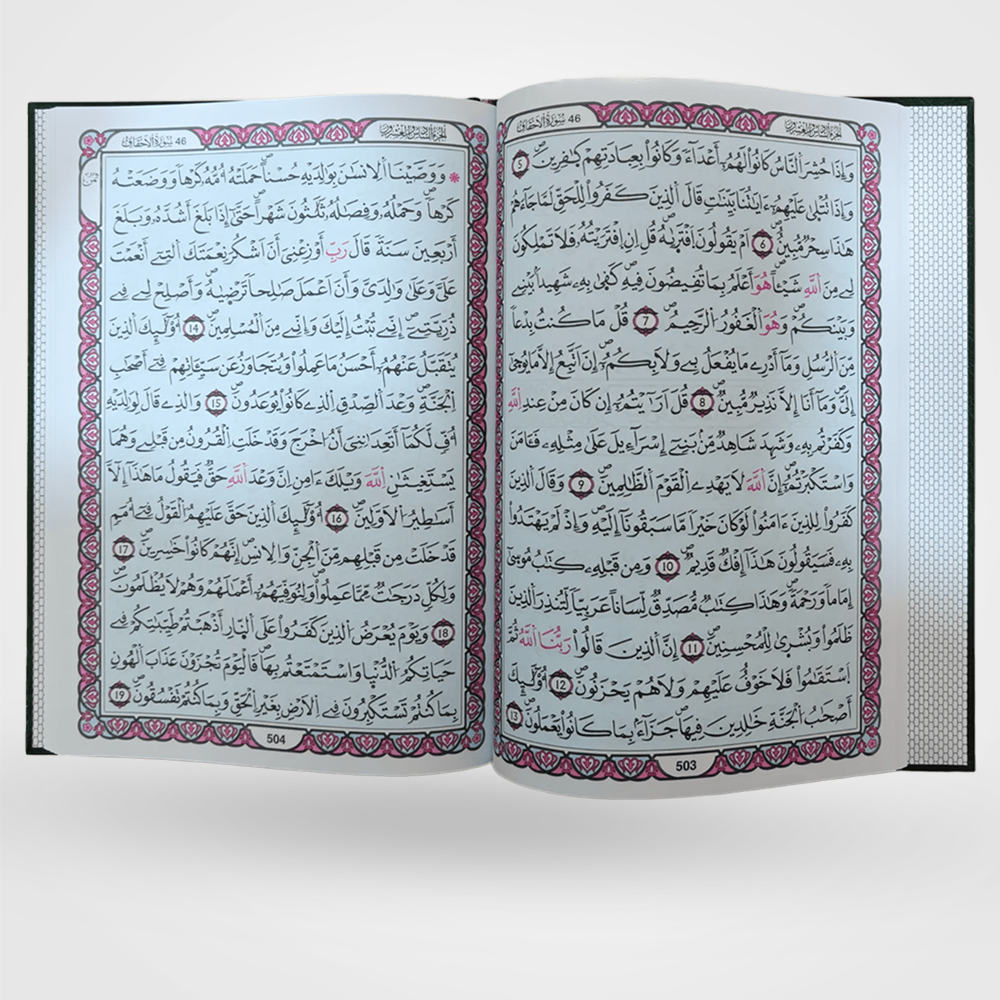 الجزء السادس والعشرون
46 سورة الاحقاف
وَإِذَا حُشِرَ اَلنَّاسُ كَانُواْ لَهُمُۥٓ أَعْدَآءٗ وَكَانُواْ بِعِبَادَتِهِمْ كٰفِرِينَۖ 5
وَإِذَا تُتْلَىٰ عَلَيْهِمُۥٓ ءَايَٰتُنَا بَيِّنَٰتٖ قَالَ اَلذِينَ كَفَرُواْ لِلْحَقِّ لَمَّا جَآءَهُمْ
هَٰذَا سِحْرٞ مُّبِينٌۖ 6 اَمْ يَقُولُونَ اَفْتَرٜىٰهُۖ قُلِ اِنِ اِفْتَرَيْتُهُۥ فَلَا تَمْلِكُونَ
لِے مِنَ اَللَّهِ شَيْـٔاًۖ هُوَ أَعْلَمُ بِمَا تُفِيضُونَ فِيهِۖ كَفٜىٰ بِهِۦ شَهِيداَۢ بَيْنِے
وَبَيْنَكُمْۖ وَهُوَ اَلْغَفُورُ اُلرَّحِيمُۖ 7 قُلْ مَا كُنتُ بِدْعاٗ
مِّنَ اَلرُّسُلِ وَمَآ أَدْرِے مَا يُفْعَلُ بِے وَلَا بِكُمُۥٓۖ إِنَ اَتَّبِعُ إِلَّا مَا يُوحٜىٰٓ
إِلَيَّ وَمَآ أَنَا إِلَّا نَذِيرٞ مُّبِينٞۖ 8 قُلَ اَرَٰٓيْتُمُۥٓ إِن كَانَ مِنْ عِندِ اِللَّهِ
وَكَفَرْتُم بِهِۦ وَشَهِدَ شَاهِدٞ مِّنۢ بَنِےٓ إِسْرَآءِيلَ عَلَىٰ مِثْلِهِۦ فَـَٔامَنَ
وَاسْتَكْبَرْتُمُۥٓۖ إِنَّ اَللَّهَ لَا يَهْدِے اِلْقَوْمَ اَلظَّٰلِمِينَۖ 9 وَقَالَ اَلذِينَ
كَفَرُواْ لِلذِينَ ءَامَنُواْ لَوْ كَانَ خَيْراٗ مَّا سَبَقُونَآ إِلَيْهِۖ وَإِذْ لَمْ يَهْتَدُواْ
بِهِۦ فَسَيَقُولُونَ هَٰذَآ إِفْكٞ قَدِيمٞۖ 10 وَمِن قَبْلِهِۦ كِتَٰبُ مُوسٜىٰٓ
إِمَاماٗ وَرَحْمَةٗۖ وَهَٰذَا كِتَٰبٞ مُّصَدِّقٞ لِّسَاناً عَرَبِيّاٗ لِّتُنذِرَ اَلذِينَ
ظَلَمُواْ وَبُشْرٜىٰ لِلْمُحْسِنِينَۖ 11 إِنَّ اَلذِينَ قَالُواْ رَبُّنَا اَللَّهُ ثُمَّ
اَسْتَقَٰمُواْ فَلَا خَوْفٌ عَلَيْهِمْ وَلَا هُمْ يَحْزَنُونَۖ 12 أُوْلَٰٓئِكَ
أَصْحَٰبُ اُلْجَنَّةِ خَٰلِدِينَ فِيهَاۖ جَزَآءَۢ بِمَا كَانُواْ يَعْمَلُونَۖ 13
503
الجزء السادس والعشرون
46 سورة الاحقاف
ثمن
۞ وَوَصَّيْنَا اَلِانسَٰنَ بِوَٰلِدَيْهِ حُسْناًۖ حَمَلَتْهُ أُمُّهُۥ كَرْهاٗ وَوَضَعَتْهُ
كَرْهاٗۖ وَحَمْلُهُۥ وَفِصَٰلُهُۥ ثَلَٰثُونَ شَهْراًۖ حَتَّىٰٓ إِذَا بَلَغَ أَشُدَّهُۥ وَبَلَغَ
أَرْبَعِينَ سَنَةٗ قَالَ رَبِّ أَوْزِعْنِيَ أَنَ اَشْكُرَ نِعْمَتَكَ اَلتِےٓ أَنْعَمْتَ
عَلَيَّ وَعَلَىٰ وَٰلِدَيَّ وَأَنَ اَعْمَلَ صَٰلِحاٗ تَرْضٜىٰهُۖ وَأَصْلِحْ لِے فِے
ذُرِّيَّتِيَۖ إِنِّے تُبْتُ إِلَيْكَ وَإِنِّے مِنَ اَلْمُسْلِمِينَۖ 14 أُوْلَٰٓئِكَ اَلذِينَ
يُتَقَبَّلُ عَنْهُمُۥٓ أَحْسَنُ مَا عَمِلُواْ وَيُتَجَاوَزُ عَن سَيِّـَٔاتِهِمْ فِےٓ أَصْحَٰبِ
اِلْجَنَّةِۖ وَعْدَ اَلصِّدْقِ اِلذِے كَانُواْ يُوعَدُونَۖ 15 وَالذِے قَالَ لِوَٰلِدَيْهِ
أُفّٖ لَّكُمَآ أَتَعِدَٰنِنِيَ أَنُ اخْرَجَ وَقَدْ خَلَتِ اِلْقُرُونُ مِن قَبْلِے وَهُمَا
يَسْتَغِيثَٰنِ اِللَّهَ وَيْلَكَ ءَامِنِ اِنَّ وَعْدَ اَللَّهِ حَقّٞۖ فَيَقُولُ مَا هَٰذَآ إِلَّآ
أَسَٰطِيرُ اُلَاوَّلِينَۖ 16 أُوْلَٰٓئِكَ اَلذِينَ حَقَّ عَلَيْهِمُ اُلْقَوْلُ فِےٓ أُمَمٖ
قَدْ خَلَتْ مِن قَبْلِهِم مِّنَ اَلْجِنِّ وَالِانسِۖ إِنَّهُمْ كَانُواْ خَٰسِرِينَۖ 17
وَلِكُلّٖ دَرَجَٰتٞ مِّمَّا عَمِلُواْۖ وَلِنُوَفِّيَهُمُۥٓ أَعْمَٰلَهُمْ وَهُمْ لَا يُظْلَمُونَۖ
18 وَيَوْمَ يُعْرَضُ اُلذِينَ كَفَرُواْ عَلَى اَلنّارِ أَذْهَبْتُمْ طَيِّبَٰتِكُمْ فِے
حَيَاتِكُمُ اُلدُّنْيٜا وَاسْتَمْتَعْتُم بِهَاۖ فَالْيَوْمَ تُجْزَوْنَ عَذَابَ اَلْهُونِ
بِمَا كُنتُمْ تَسْتَكْبِرُونَ فِے اِلَارْضِ بِغَيْرِ اِلْحَقِّ وَبِمَا كُنتُمْ تَفْسُقُونَۖ 19
504